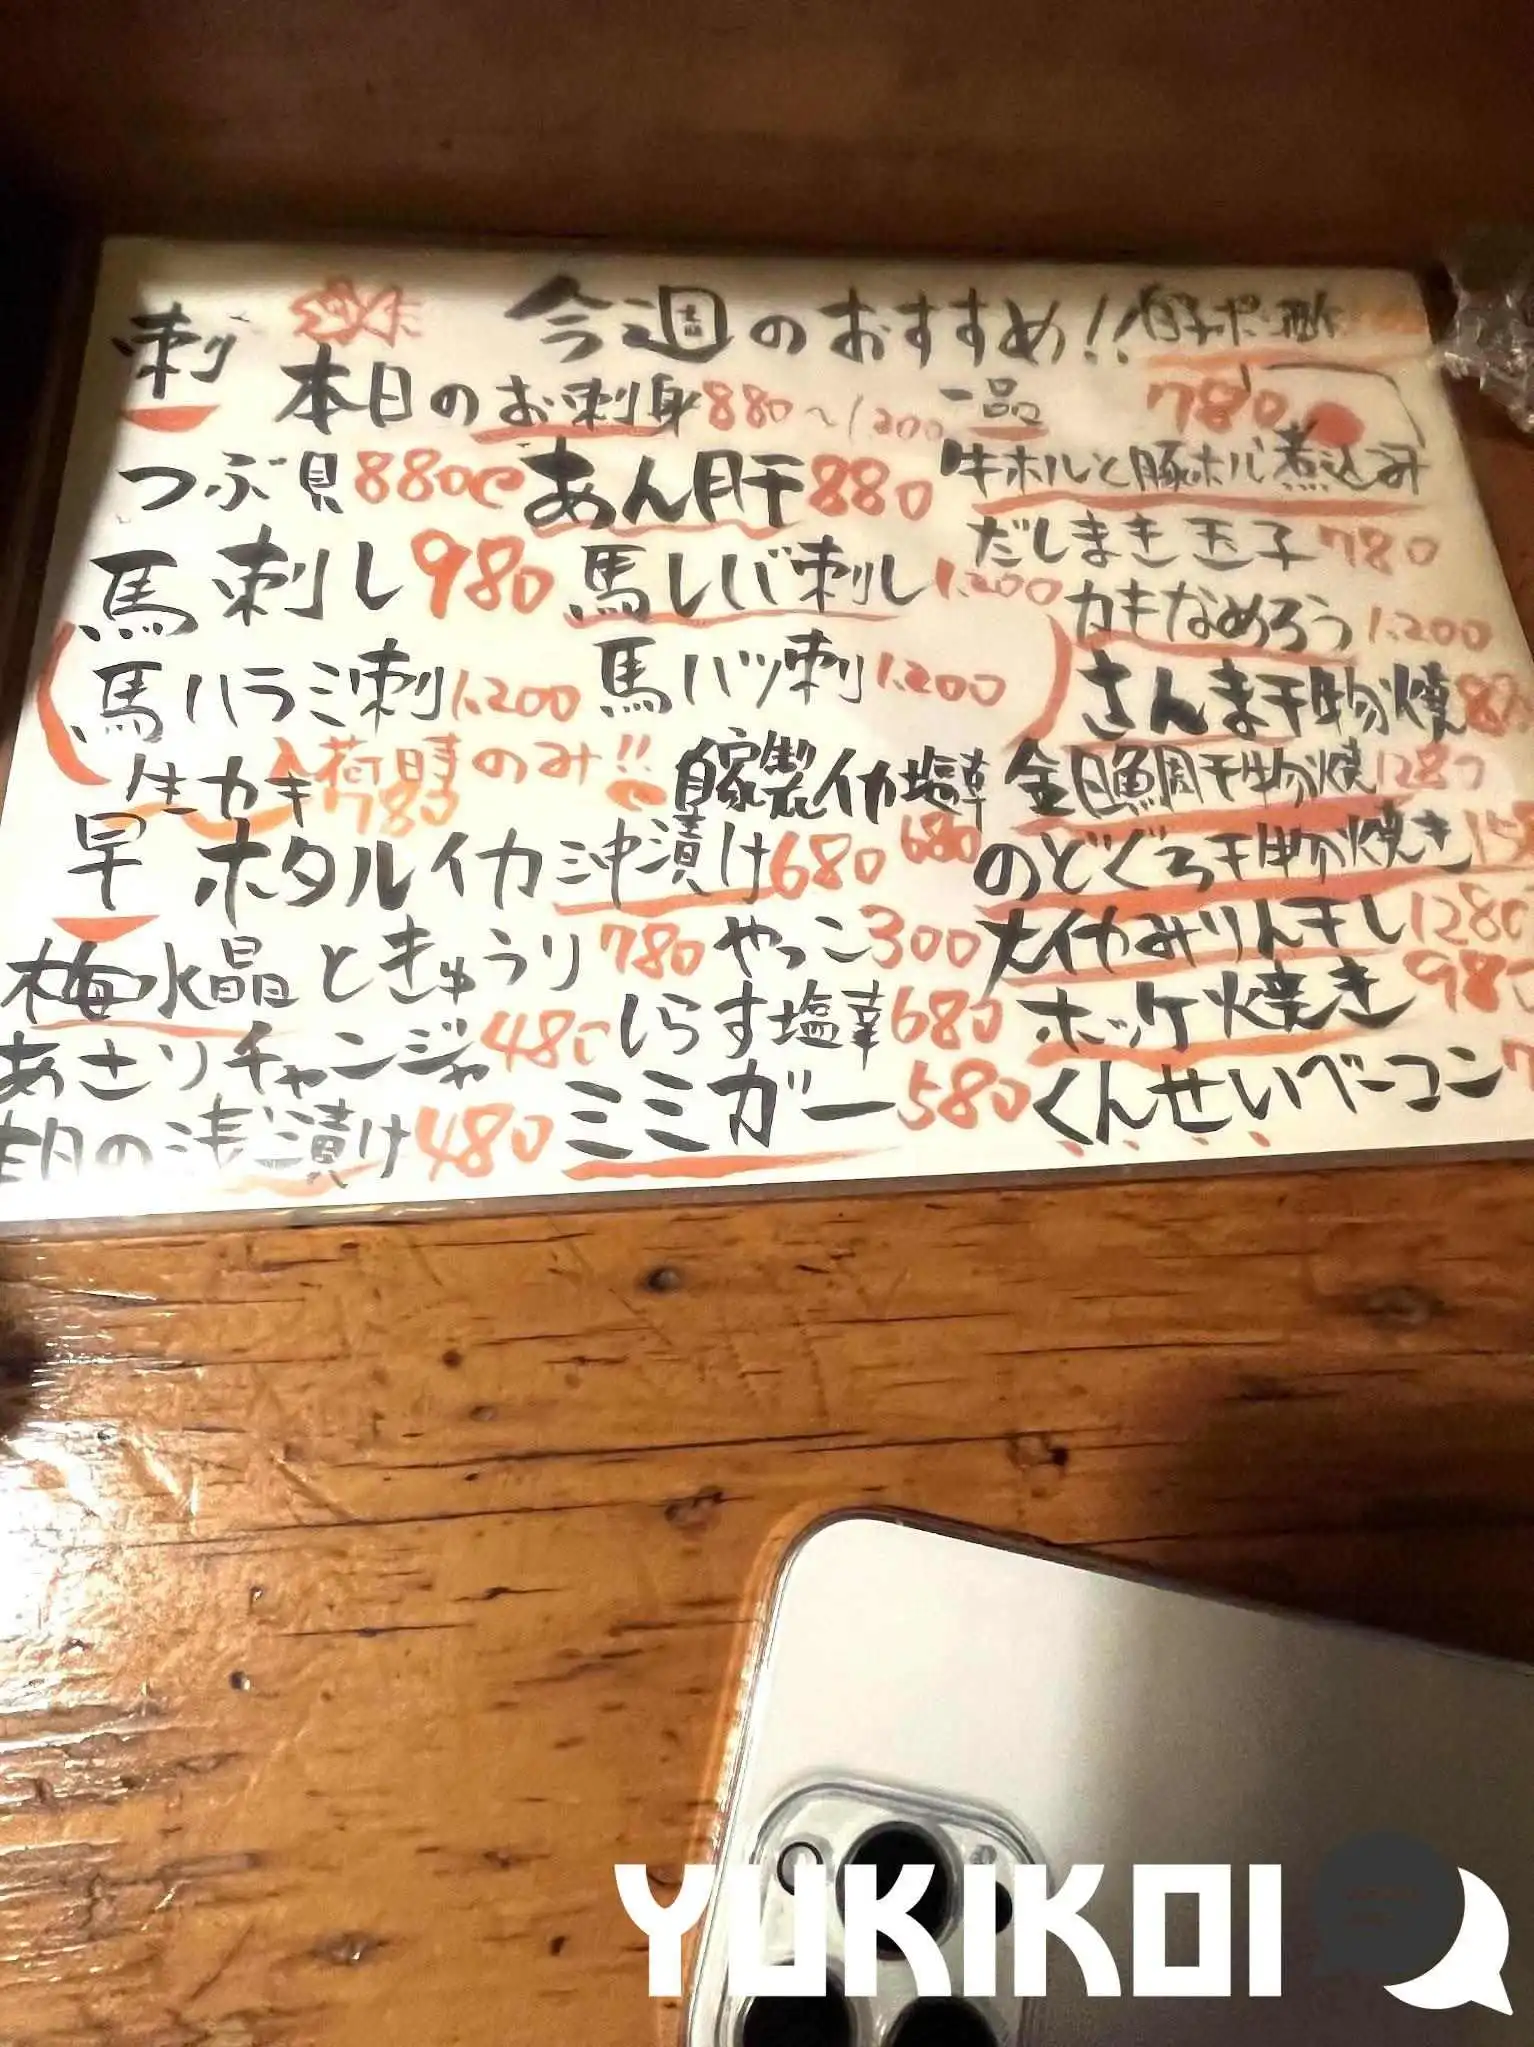 今週のおすすめ!!
刺
本日のお刺身 880〜1200
つぶ貝 880 あん肝 880
馬刺し 980 馬レバ刺し 1.200
馬ハラミ刺 1.200 馬ハツ刺 1.200
生カキ 入荷時のみ!! 780
自家製イカ塩辛 680
早 ホタルイカ沖漬け 680
梅水晶ときゅうり 780 やっこ 300
あさりチャンジャ 480 しらす塩辛 680
の浅漬け 480 ミミガー 580
ポン酢
一品 780
牛ホルと豚ホル煮込み
だしまき玉子 780
カキなめろう 1.200
さんま干物焼
金目鯛干物焼 1280
のどぐろ干物焼き
大イカみりん干し 1280
ホッケ焼き 980
くんせいベーコン
YUKIKOI